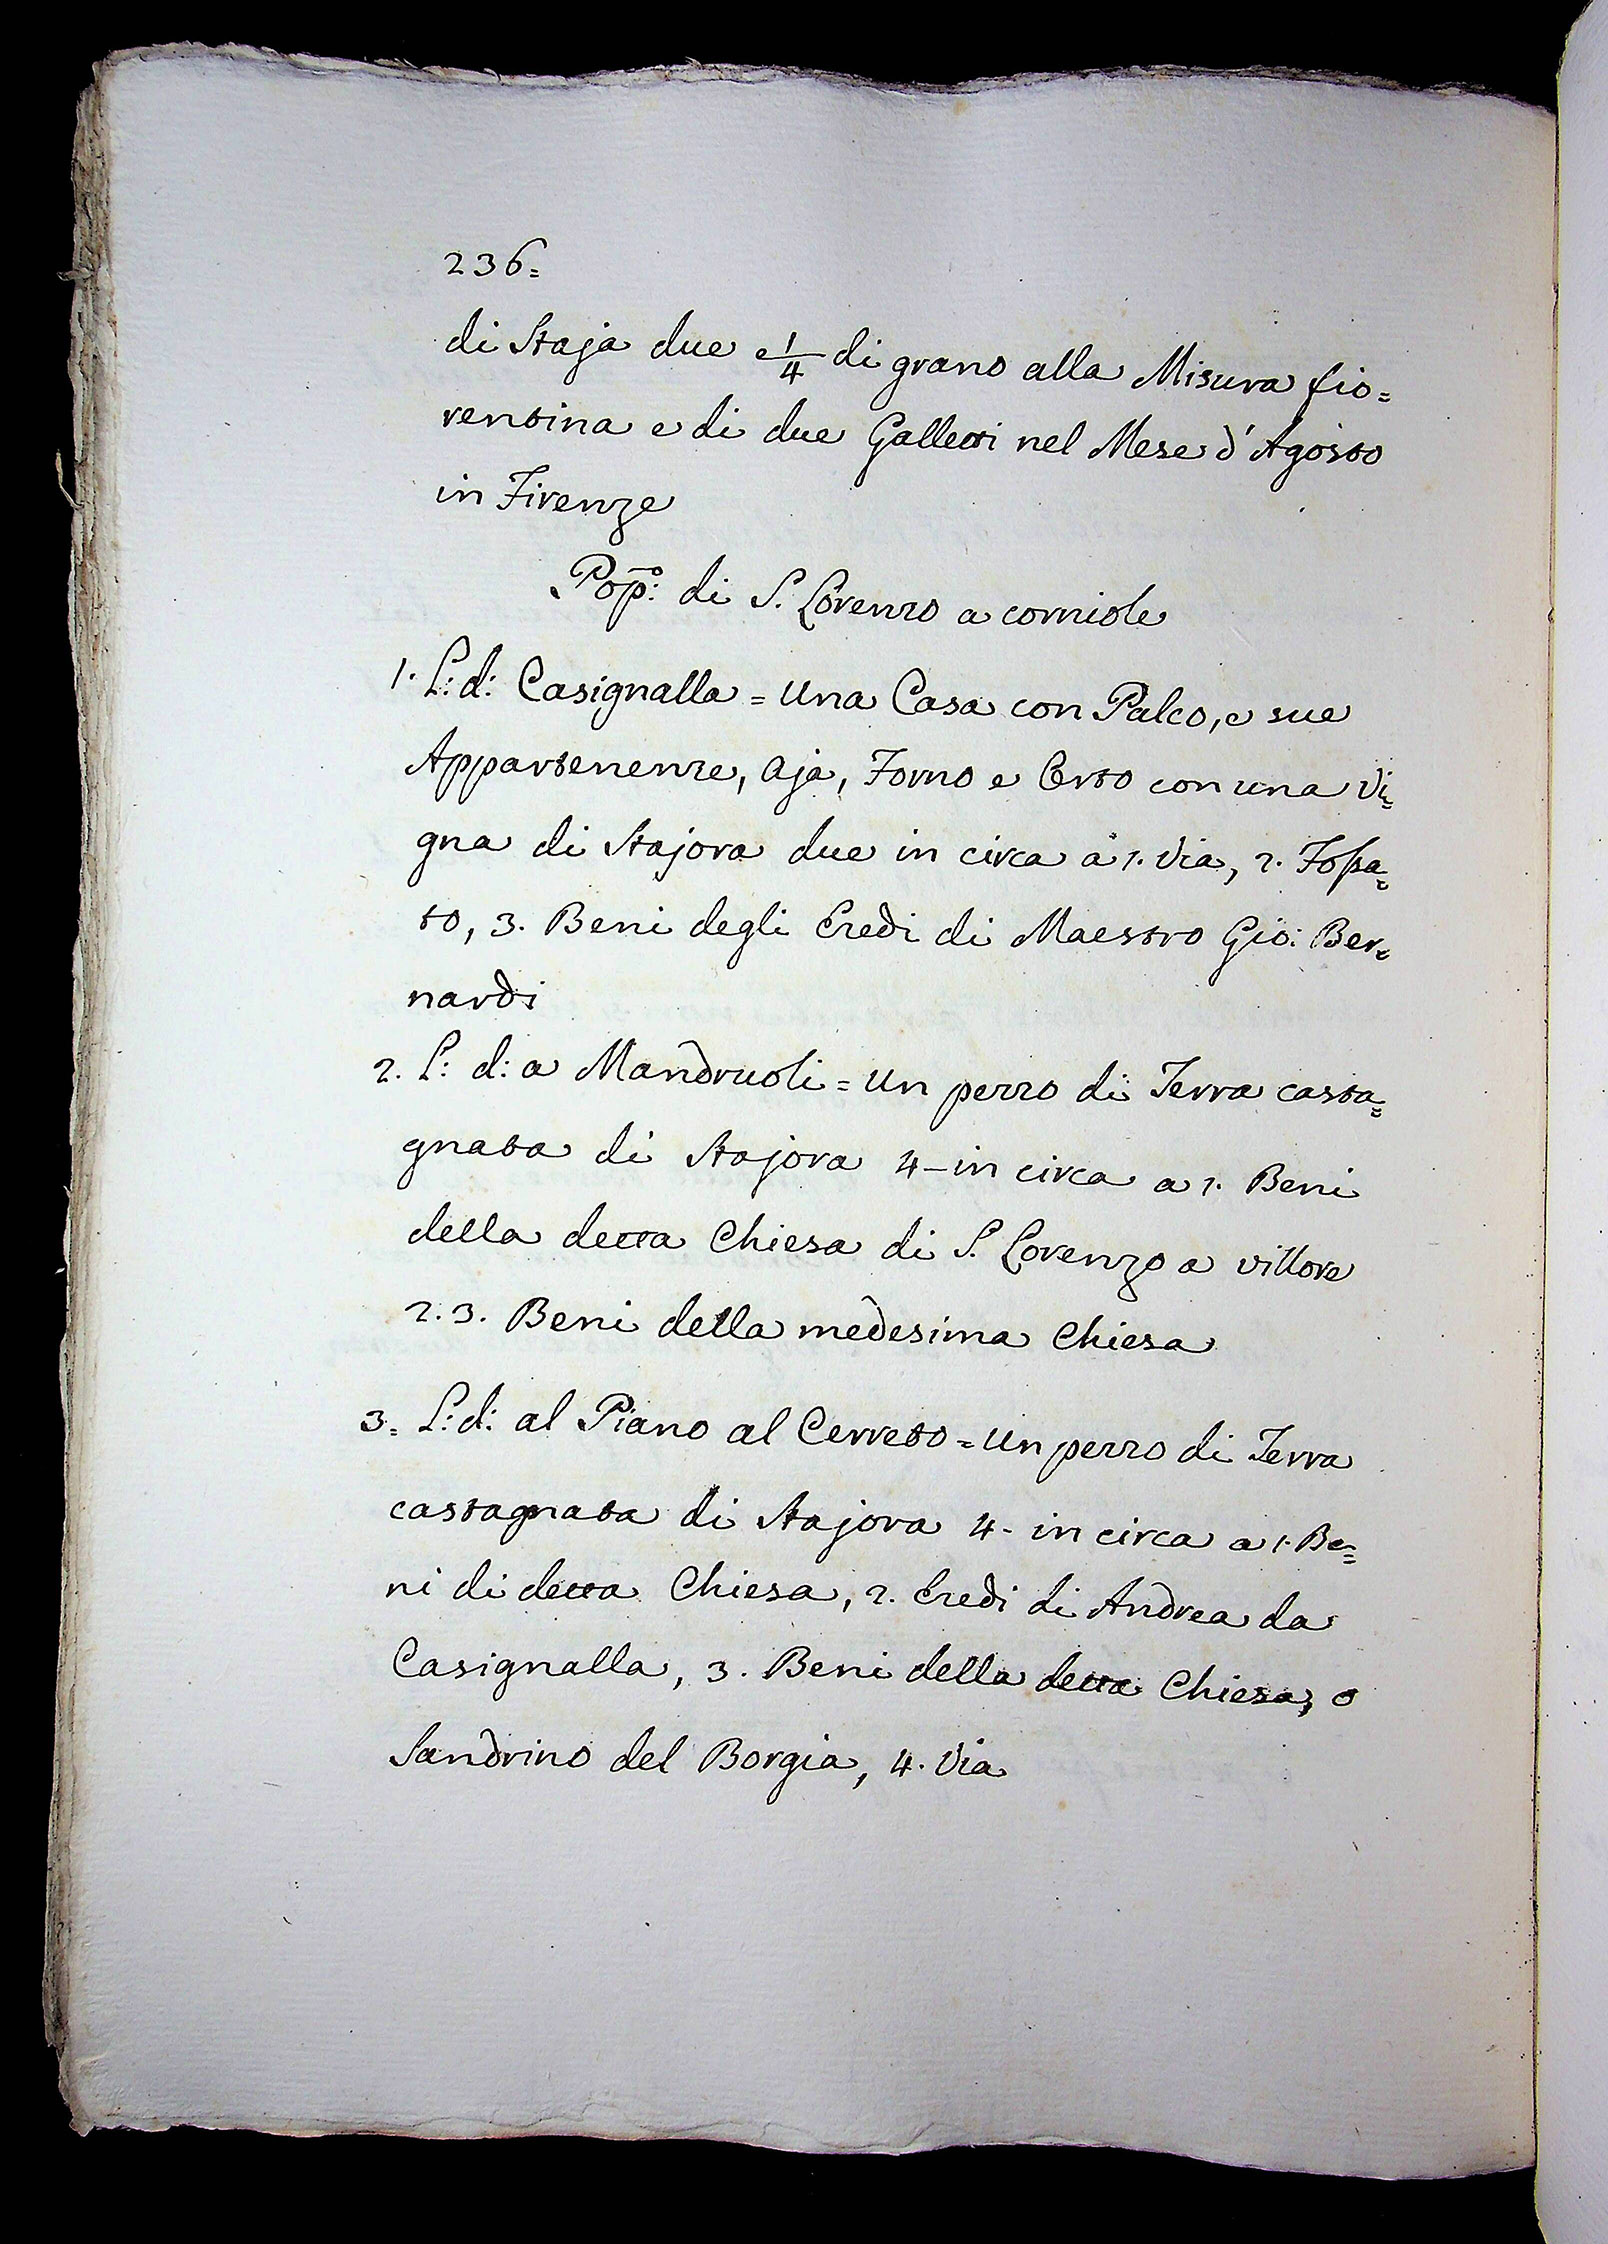 236=
di Staja due e 1/4 di grano alla Misura fio=
rentina e di due Galletti nel Mese d'Agosto
in Firenze
Pop̃:º di S. Lorenzo a corniole
1. L: d: Casignalla = Una Casa con Palco, e sue
Appartenenze, Aja, Forno e Orto con una Vi=
gna di Stajora due in circa a 1. Via, 2. Fossa=
to, 3. Beni degli Eredi di Maestro Gio: Ber=
nardi
2. L: d: a Mandruoli = Un pezzo di Terra casta=
gnata di Stajora 4- in circa a 1. Beni
della detta Chiesa di S. Lorenzo a villore
2. 3. Beni della medesima Chiesa
3= L: d: al Piano al Cerreto = Un pezzo di Terra
castagnata di Stajora 4- in circa a 1. Be=
ni di detta Chiesa, 2. Eredi di Andrea da
Casignalla, 3. Beni della detta Chiesa, o
Sandrino del Borgia, 4. Via